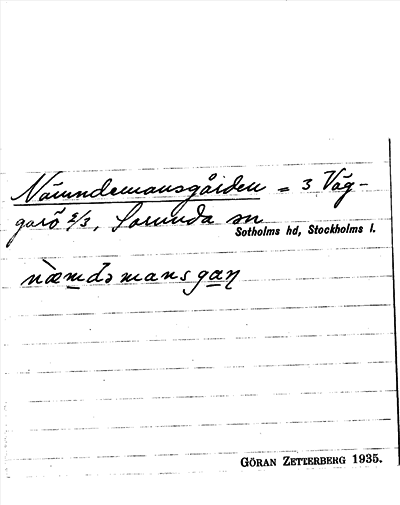 Nämndemansgården = 3 Väg-
garö 2/3, Sorunda sn
Sotholms hd, Stockholms l.
næmdəmansgaŋ
GÖRAN ZETTERBERG 1935.